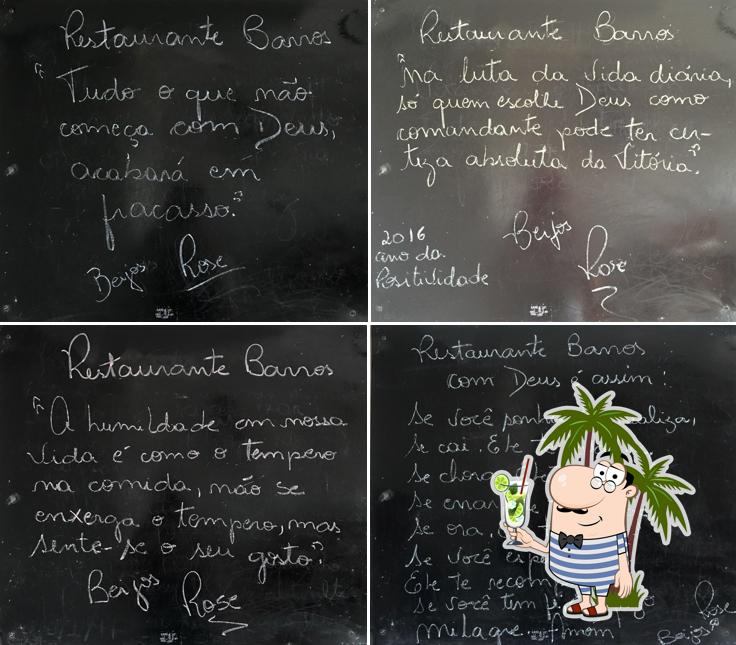 Restaurante Barros
"Tudo o que não
começa com Deus,
acabará em
fracasso."
Beijos Rose
Restaurante Barros
"Na luta da vida diária,
só quem escolhe Deus como
comandante pode ter cer-
teza absoluta da Vitória."
2016
ano da
Positividade
Beijos
Rose
Restaurante Barros
"A humildade em nossa
vida é como o tempero
na comida, não se
enxerga o tempero, mas
sente-se o seu gosto."
Beijos Rose
Restaurante Barros
com Deus é assim!
Se você
Se cai, Ele
Se chora
Se
Se ora,
Se você
Ele te
Se você tem
milagre. Amom
Rose
Beijos